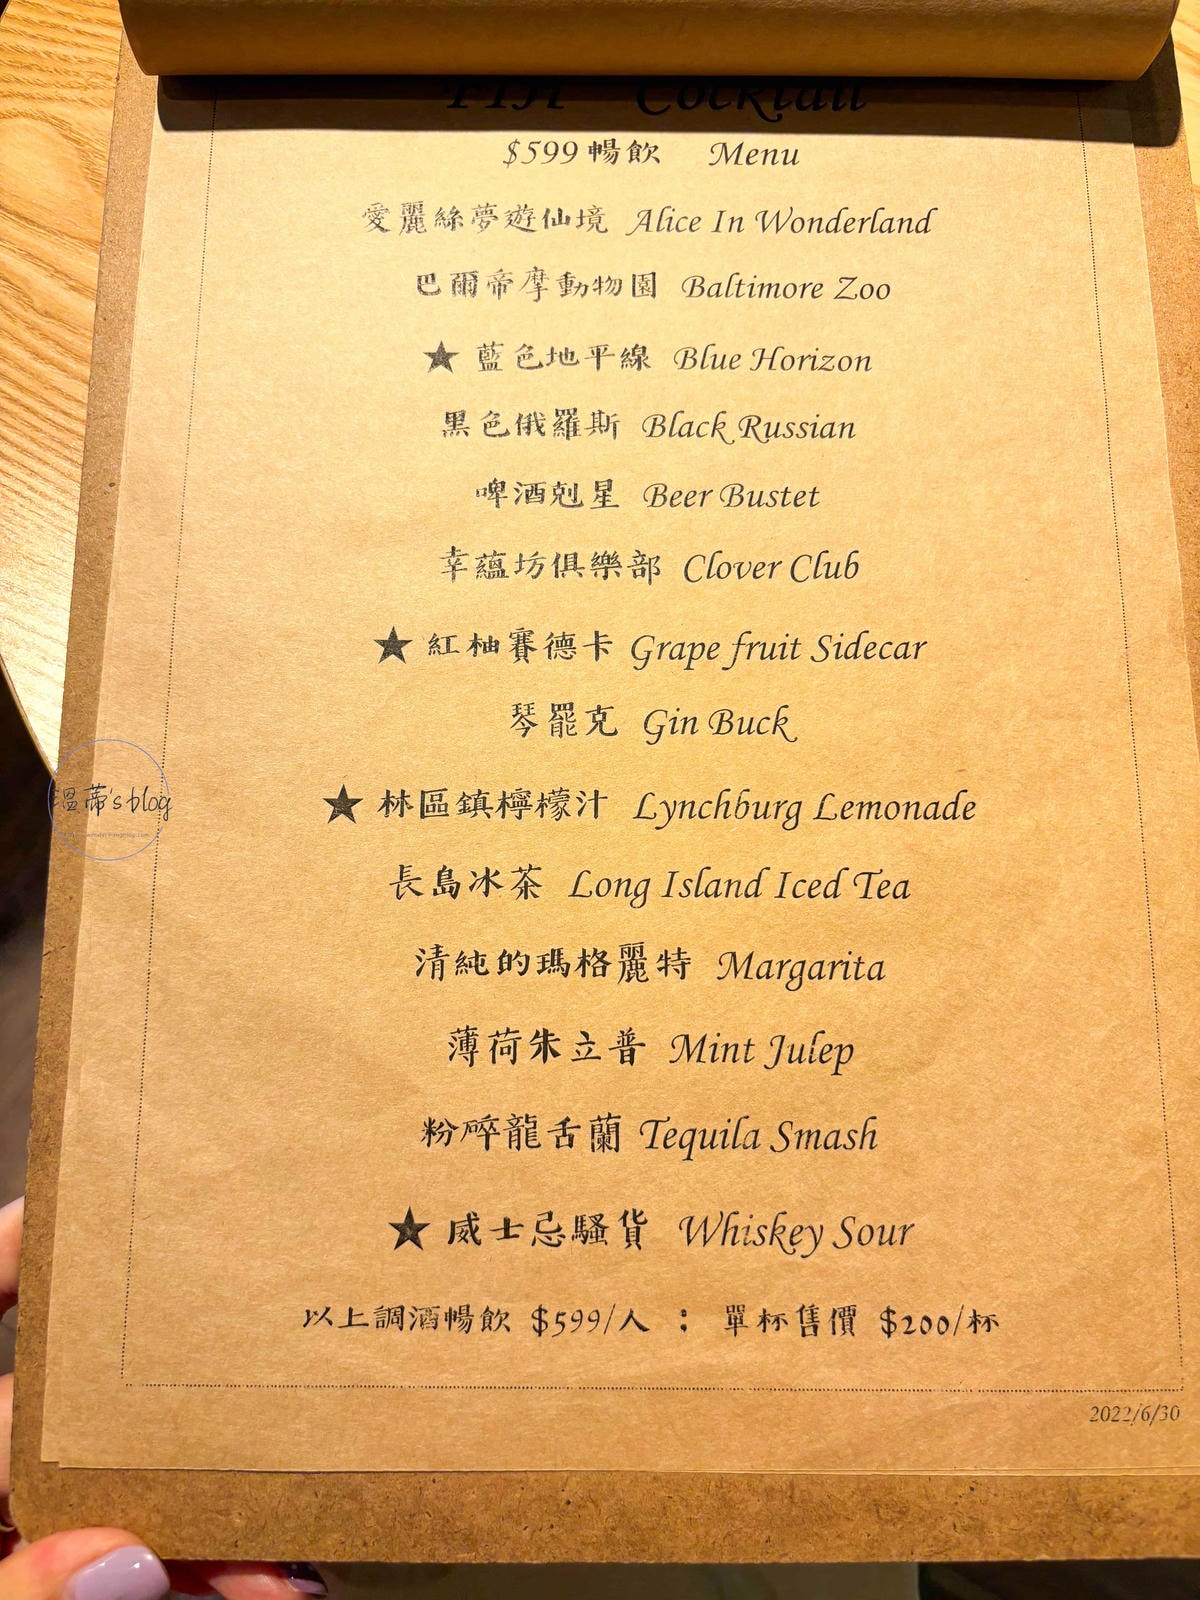 FIJI Cocktail
$599 暢飲 Menu
愛麗絲夢遊仙境 Alice In Wonderland
巴爾帝摩動物園 Baltimore Zoo
★ 藍色地平線 Blue Horizon
黑色俄羅斯 Black Russian
啤酒剋星 Beer Bustet
幸蘊坊俱樂部 Clover Club
★ 紅柚賽德卡 Grape fruit Sidecar
琴罷克 Gin Buck
★ 林區鎮檸檬汁 Lynchburg Lemonade
溫蒂's blog
長島冰茶 Long Island Iced Tea
清純的瑪格麗特 Margarita
薄荷朱立普 Mint Julep
粉碎龍舌蘭 Tequila Smash
★ 威士忌騷貨 Whiskey Sour
以上調酒暢飲 $599/人 ; 單杯售價 $200/杯
2022/6/30